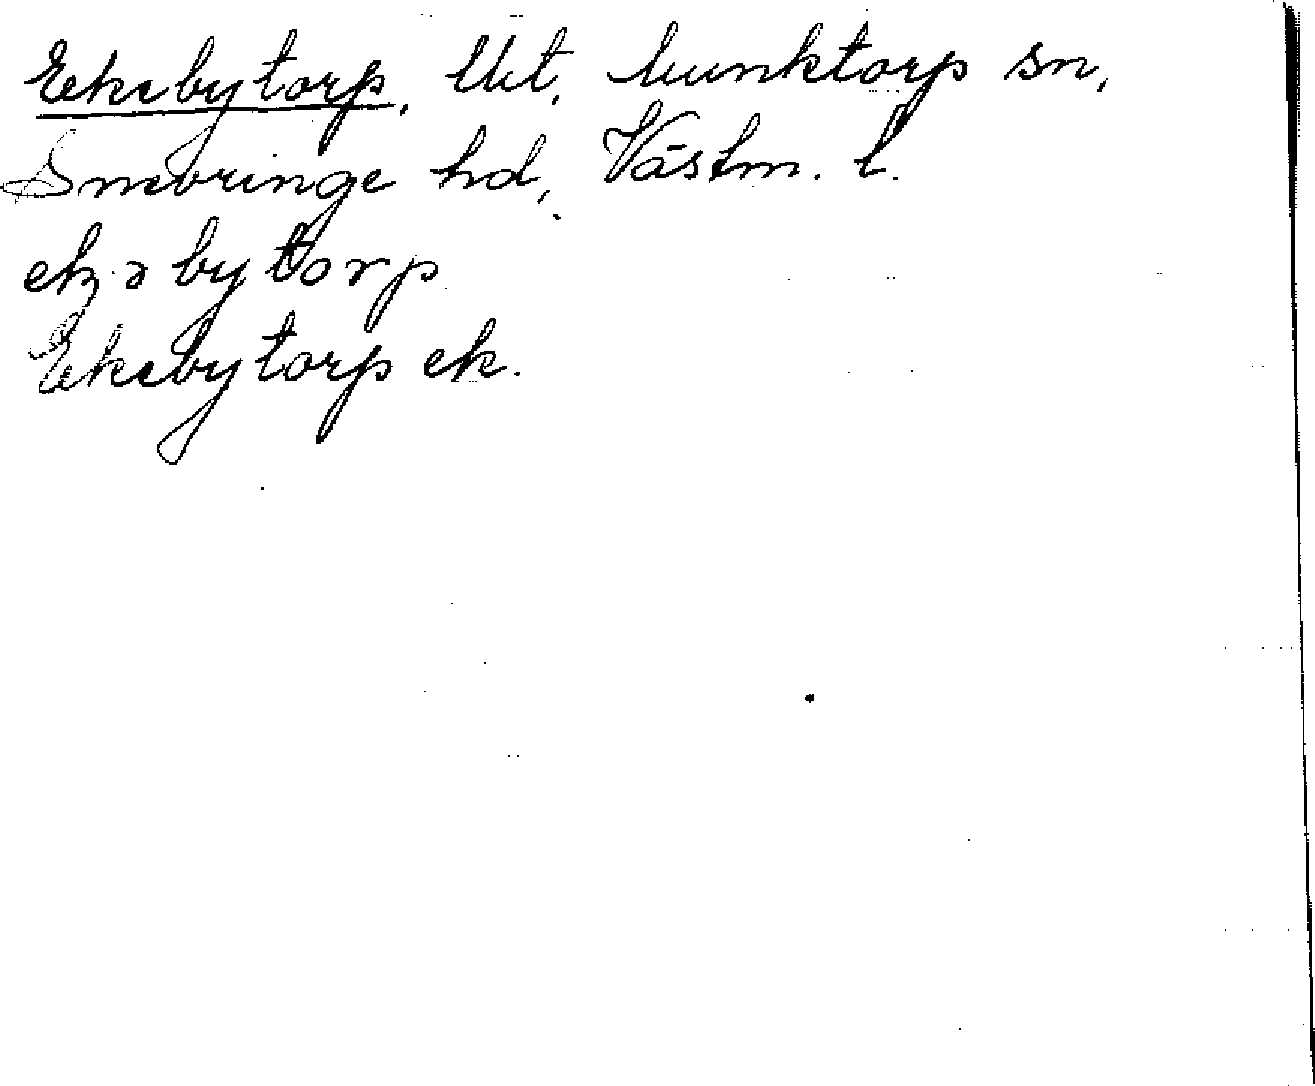 Ekebytorp, Munktorp sn,
Snevringe hd, Västm. l.
ekəbytorp
Ekebytorp ek.